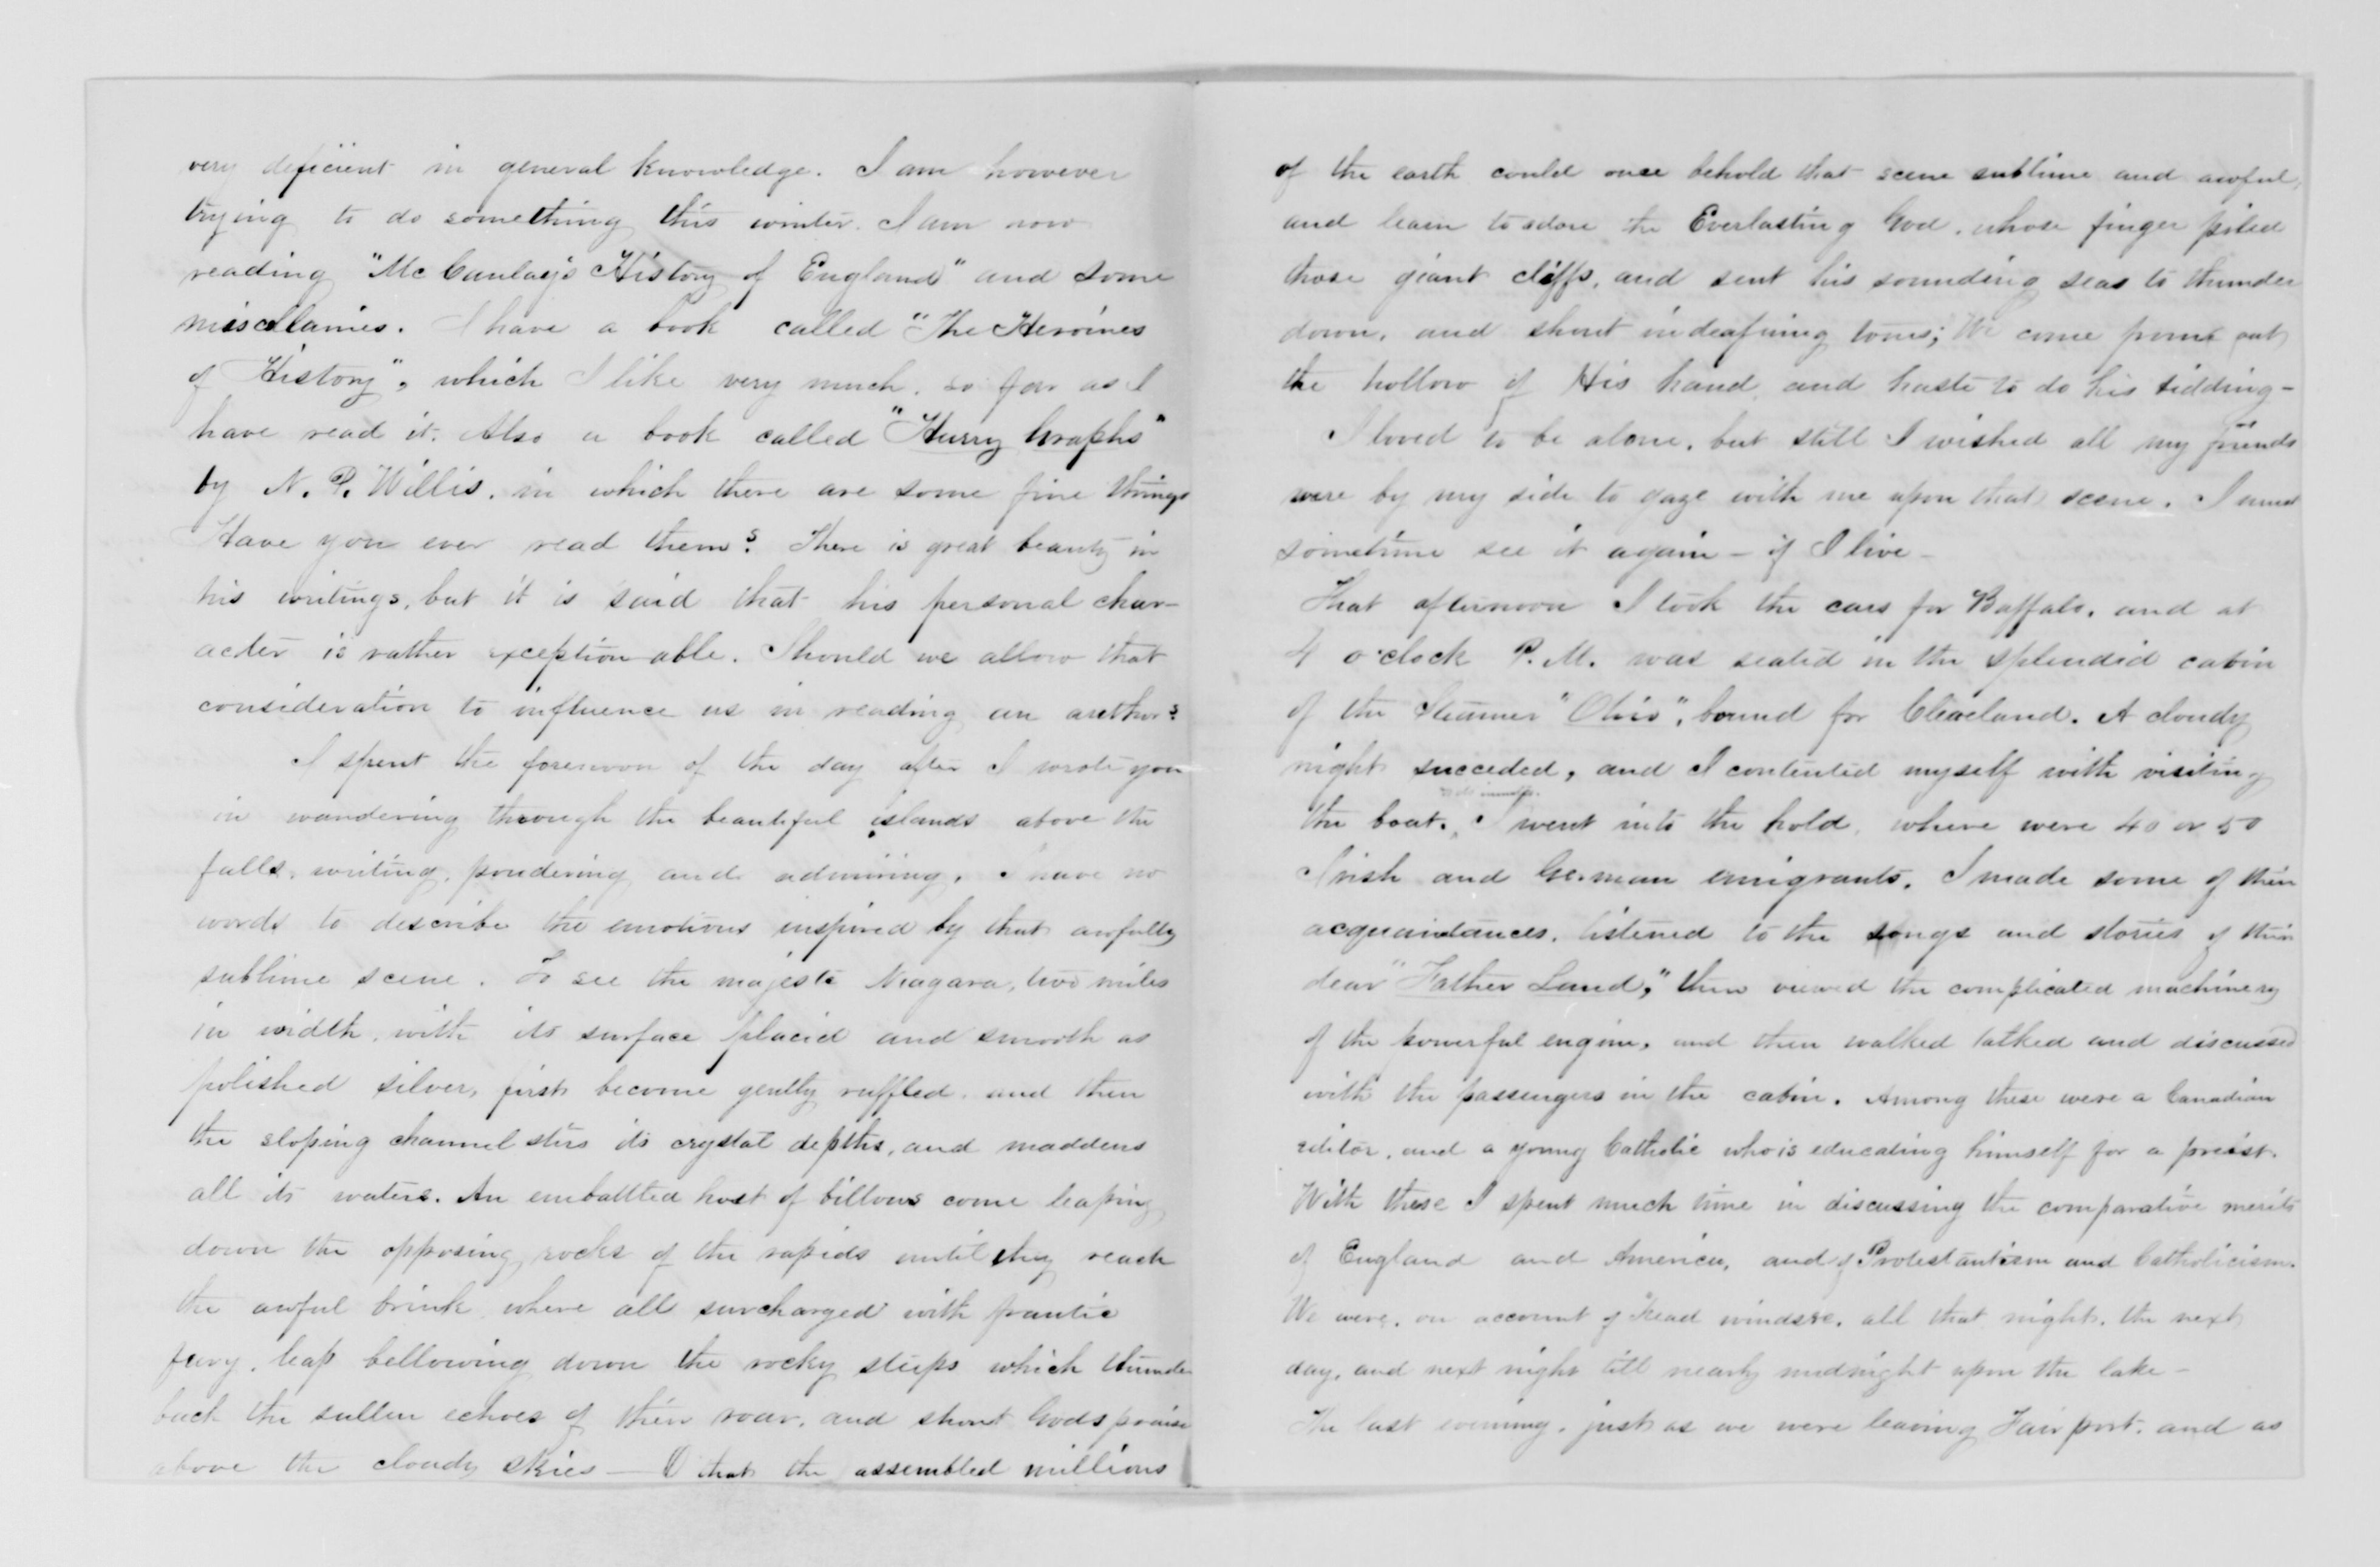 very deficient in general knowledge. I am however
trying to do something this winter. I am now
reading "McCaulay's History of England" and some
miscellanies. I have a book called "The Heroines
of History", which I like very much, so far as I
have read it. Also a book called "Hurry Graphs"
by N. P. Willis, in which there are some fine things
Have you ever read them? There is great beauty in
his writings, but it is said that his personal char-
acter is rather exceptionable. Should we allow that
consideration to influence us in reading an author?
I spent the forenoon of the day after I wrote you
in wandering through the beautiful islands above the
falls, writing, pondering and admiring. I have no
words to describe the emotions inspired by that awfully
sublime scene. To see the majestic Niagara, two miles
in width, with its surface placid and smooth as
polished silver, first become gently ruffled, and then
the sloping channel stirs its crystal depths, and maddens
all its waters. An embattled host of billows come leaping
down the opposing rocks of the rapids until they reach
the awful brink where all surcharged with frantic
fury, leap bellowing down the rocky steeps which thunder
back the sullen echoes of their roar, and shout Gods praise
above the cloudy skies — O that the assembled millions
of the earth could once behold that scene sublime and awful,
and learn to adore the Everlasting God, whose finger piled
those giant cliffs, and sent his sounding seas to thunder
down, and shout in deafning tones; We come from out
the hollow of His hand, and haste to do his bidding -
I loved to be alone, but still I wished all my friends
were by my side to gaze with me upon that scene. I must
sometime see it again - if I live -
That afternoon I took the cars for Buffalo, and at
4 o'clock P.M. was seated in the splendid cabin
of the Steamer "Ohio", bound for Cleaveland. A cloudy
night succeeded, and I contented myself with visiting
the boat. I went into the hold, where were 40 or 50
Irish and German emigrants. I made some of their
acquaintances, listened to the songs and stories of their
dear "Father Land," then viewed the complicated machinery
of the powerful engine, and then walked talked and discussed
with the passengers in the cabin. Among these were a Canadian
editor, and a young Catholic who is educating himself for a preist.
With these I spent much time in discussing the comparative merits
of England and America, and of Protestantism and Catholicism.
We were, on account of head winds &c. all that night, the next
day, and next night till nearly midnight upon the lake -
The last evening, just as we were leaving Fairport, and as